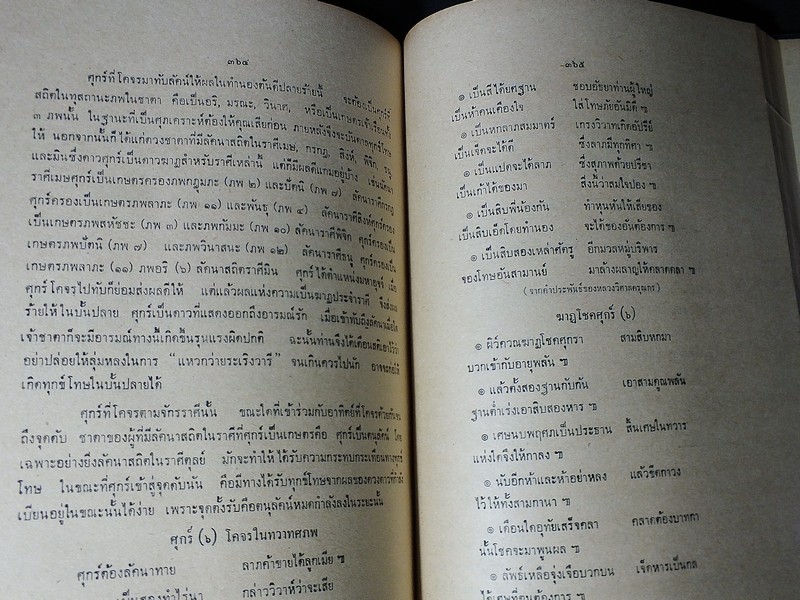 ๓๖๔
ศุกร์ที่โคจรมาทับลัคน์ให้ผลในทำนองต้นดีปลายร้ายนี้ จะต้องเป็นศุกร์ที่
สถิตในทุสถานะภพในชาตา คือเป็นอริ, มรณะ, วินาศ, หรือเป็นเกษตรเจ้าเรือนทั้ง
๓ ภพนั้น ในฐานะที่เป็นศุภเคราะห์ต้องให้คุณเสียก่อน ภายหลังจึงจะบันดาลทุกข์โทษ
ให้ นอกจากนั้นก็ได้แก่ดวงชาตาที่มีลัคนาสถิตในราศีเมษ, กรกฎ, สิงห์, พิจิก, ธนู,
และมีนซึ่งดาวศุกร์เป็นดาวฆาฏสำหรับราศีเหล่านี้ แต่ก็มีผลดีแถมอยู่บ้าง เช่นลัคนา
ราศีเมษศุกร์เป็นเกษตรครองภพกฎุมภะ (ภพ ๒) และปัตนิ (ภพ ๗) ลัคนาราศีกรกฎ
ศุกร์ครองเป็นเกษตรภพลาภะ (ภพ ๑๑) และพันธุ (ภพ ๔) ลัคนาราศีสิงห์ศุกร์ครอง
เป็นเกษตรภพสหัชชะ (ภพ ๓) และภพกัมมะ (ภพ ๑๐) ลัคนาราศีพิจิก ศุกร์ครองเป็น
เกษตรภพปัตนิ (ภพ ๗) และภพวินาสนะ (ภพ ๑๒) ลัคนาราศีธนู ศุกร์ครองเป็น
เกษตรภพลาภะ (๑๑) ภพอริ (๖) ลัคนาสถิตราศีมีน ศุกร์ได้ตำแหน่งมหาอุจจ์ เมื่อ
ศุกร์โคจรไปทับก็ย่อมส่งผลดีให้ แต่แล้วผลแห่งความเป็นฆาฏประจำราศี จึงส่งผล
ร้ายให้ในบั้นปลาย ศุกร์เป็นดาวที่แสดงออกถึงอารมณ์รัก เมื่อเข้าทับถึงลัคนาเมื่อใด
เจ้าชาตาก็จะมีอารมณ์ทางนี้เกิดขึ้นรุนแรงผิดปกติ ฉะนั้นท่านจึงได้เตือนสติเอาไว้ว่า
อย่าปล่อยให้ลุ่มหลงในการ “แหวกว่ายระเริงวารี” จนเกินควรไปนัก อาจจะก่อให้
เกิดทุกข์โทษในบั้นปลายได้
ศุกร์ที่โคจรตามจักรราศีนั้น ขณะใดที่เข้าร่วมกับอาทิตย์ที่โคจรด้วยกันจน
ถึงจุดดับ ชาตาของผู้ที่มีลัคนาสถิตในราศีที่ศุกร์เป็นเกษตรคือ ศุกร์เป็นตนุลัคน์ โดย
เฉพาะอย่างยิ่งลัคนาสถิตในราศีตุลย์ มักจะทำให้ได้รับความกระทบกระเทือนทางทุกข์
โทษ ในขณะที่ศุกร์เข้าสู่จุดดับนั้น คือมีทางได้รับทุกข์โทษจากผลของดวงดาวที่กำลัง
เบียนอยู่ในขณะนั้นได้ง่าย เพราะจุดตั้งรับคือตนุลัคน์หมดกำลังลงในระยะนั้น
ศุกร์ (๖) โคจรในทวาทศภพ
ศุกร์ต้องลัคนาทาย ลาภค้าขายได้ลูกเมีย ฯ
เป็นสองทำไร่นา กล่าววิวาห์ว่าจะเสีย
๓๖๕
๏ เป็นสี่ได้ยศฐาน ชอบอัชยาท่านผู้ใหญ่
เป็นห้าคนเคืองใจ ใส่โทษภัยอันมิดี ฯ
๏ เป็นหกลาภสมมาตร์ เกรงวิวาทเกิดอัปรีย์
เป็นเจ็ดจะได้ดี ซึ่งลาภมีทุกทิศา ฯ
๏ เป็นแปดจะได้ลาภ ซึ่งสุภาพด้วยปรีชา
เป็นเก้าได้ของมา สิ่งนี้ว่าสมใจปอง ฯ
๏ เป็นสิบพี่น้องกัน ทำหุนหันให้เสียของ
เป็นสิบเอ็ดโดยทำนอง จะได้ของอันต้องการ ฯ
๏ เป็นสิบสองเหล่าศัตรู อีกมวลหมู่บริพาร
จองโทษอันสามานย์ มาล้างผลาญให้คลาดคลา ฯ
(จากคำประพันธ์ของหลวงวิศาลดรุณกร)
ฆาฏโชคศุกร์ (๖)
๏ ผิว์ควณฆาฏโชคศุกรา สามสิบหกมา
บวกเข้ากับอายุพลัน ฯ
๏ แล้วตั้งสองฐานกับกัน เอาสามคูณพลัน
ฐานต่ำเร่งเอาสิบสองหาร ฯ
๏ เศษนบพฤศภเป็นประธาน สิ้นเศษในทวาร
แห่งใดจึงให้กาลง ฯ
๏ นับอีกห้าและห้าอย่าหลง แล้วขีดกาวง
ไว้ให้ทั้งสามกานา ฯ
๏ เดือนใดอุทัยเสร็จคลา คลาดต้องบาทกา
นั้นโชคจะมาพูนผล ฯ
๏ ลัพธ์เหลือจุ่งเจือบวกบน เจ็ดหารเป็นกล
ได้เศษที่ตนต้องการ ฯ